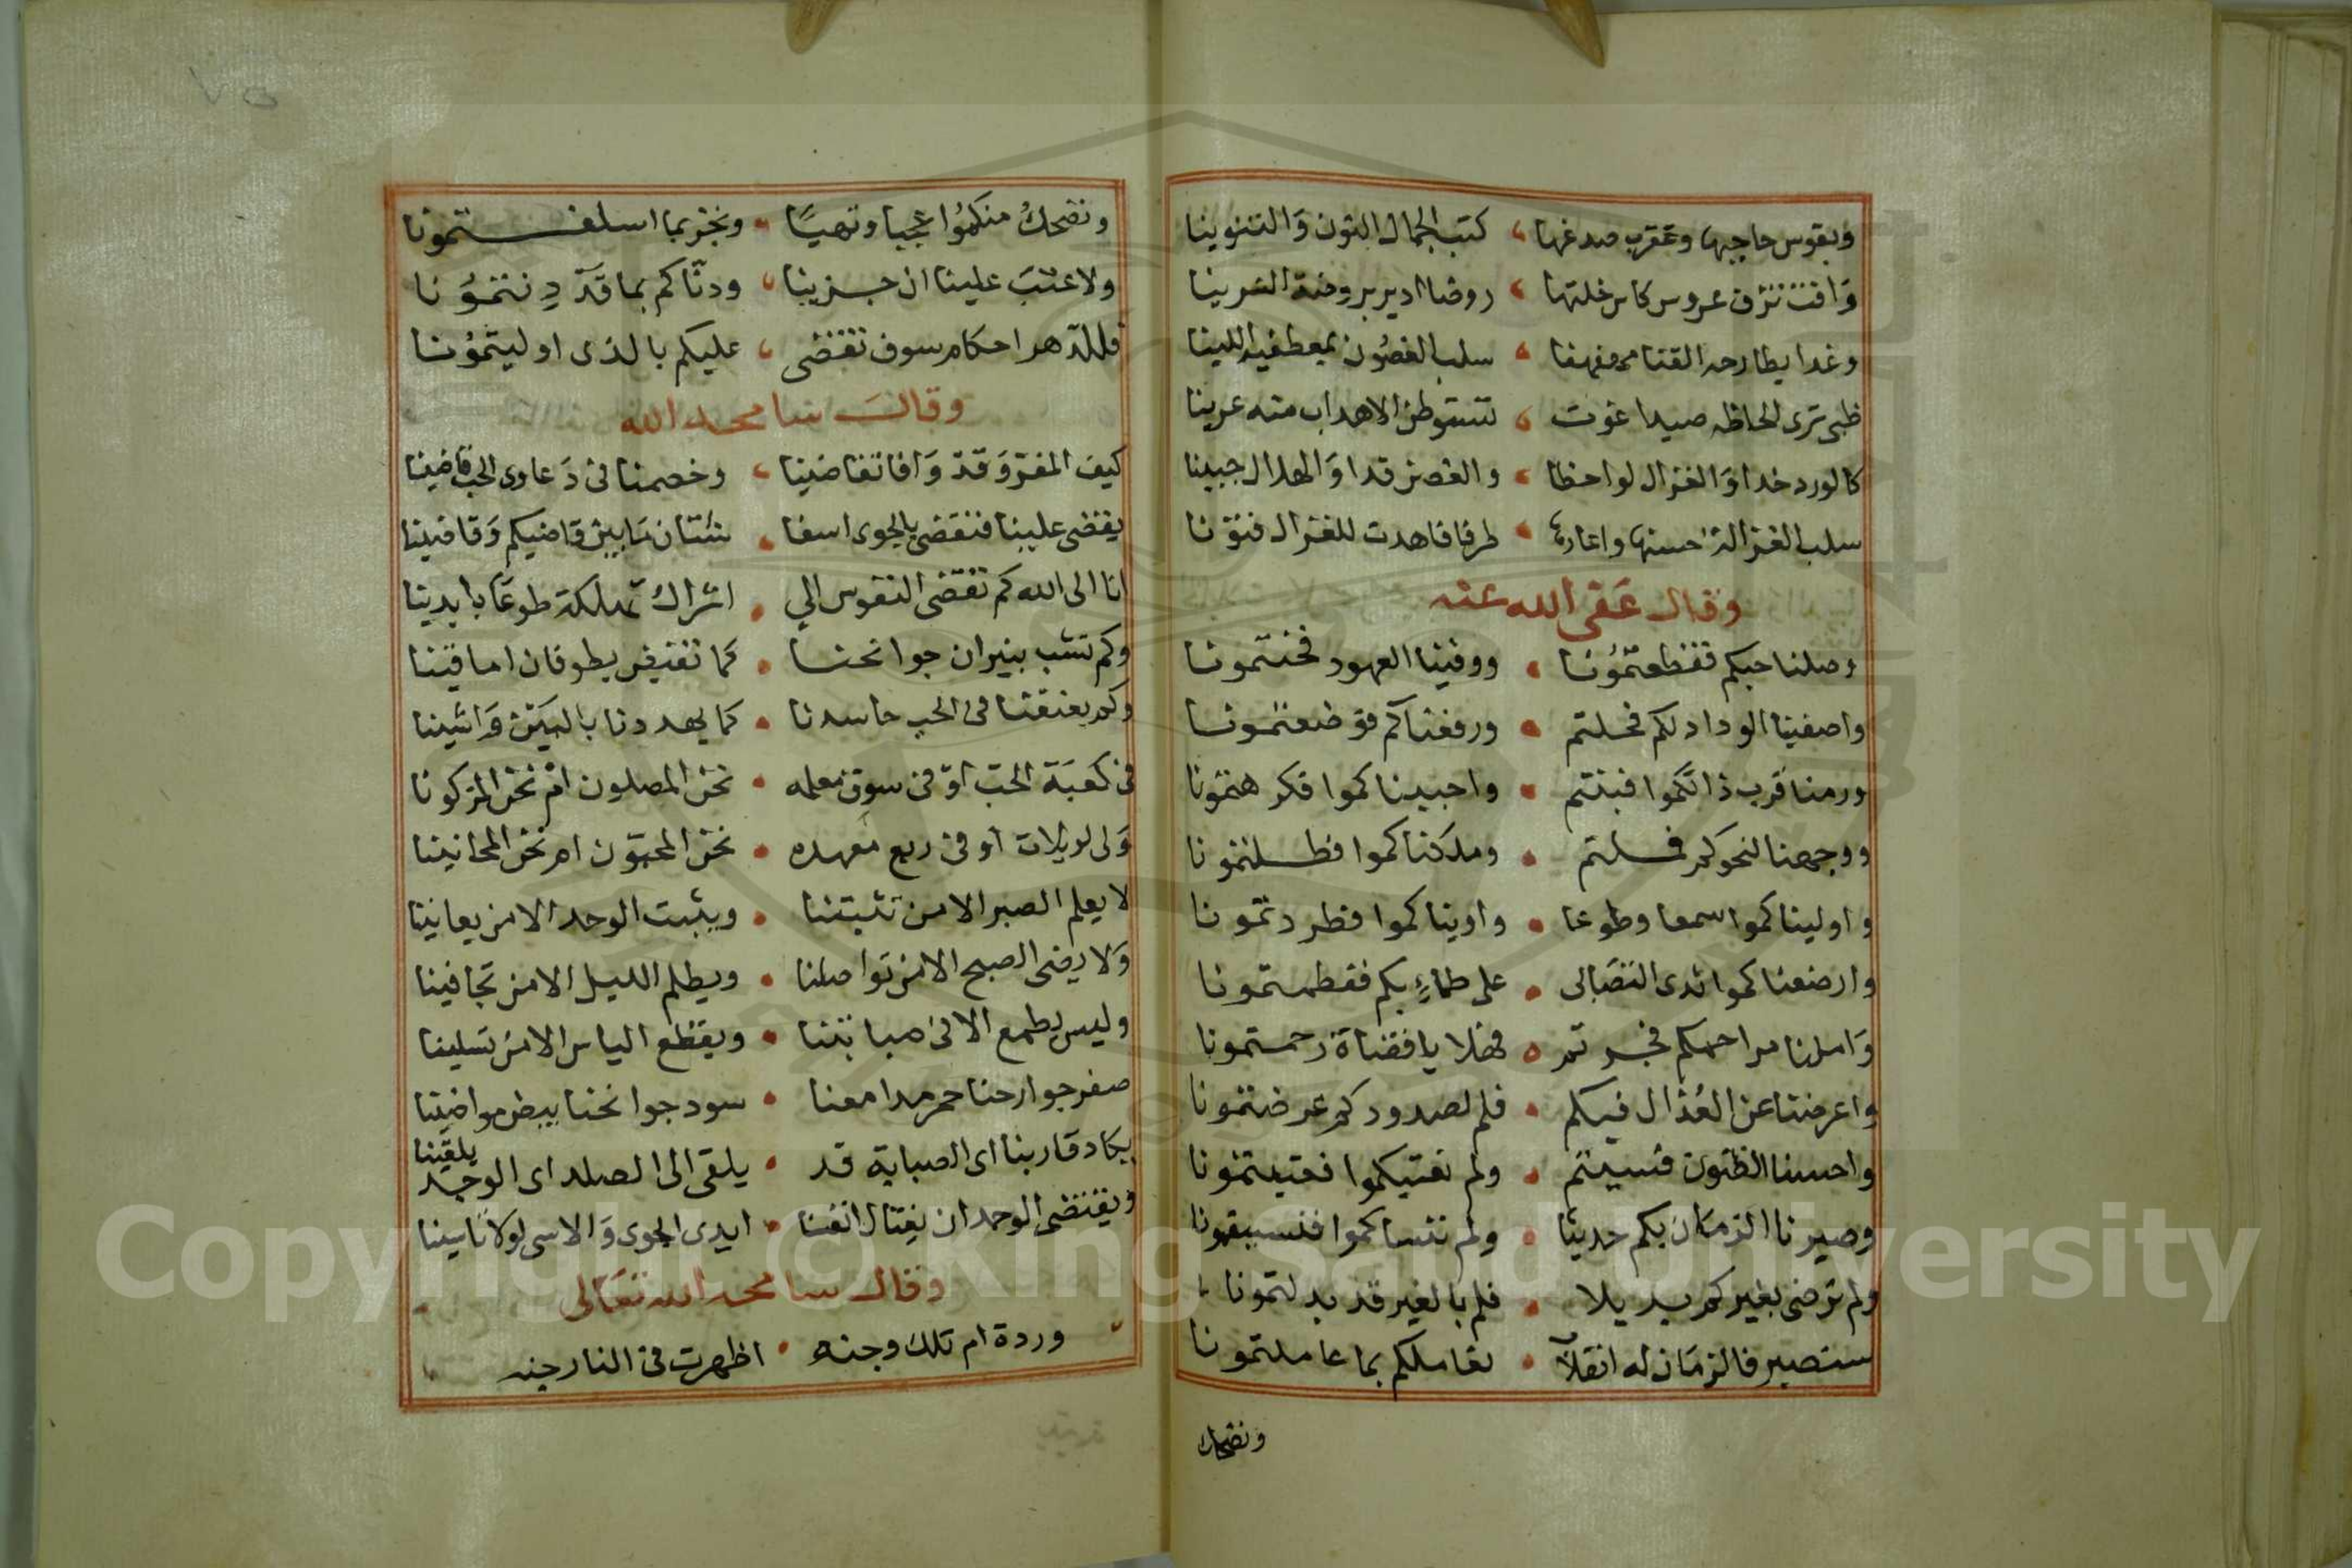 وبقوس حاجبها وعقرب صدغها ، كتب الجمال النون وَالتنوينا
وَافت تزف عروس كاس خلتها ، روضا ادير بروضة النسرينا
وغدا يطارحه القنا مهفهفا ، سلب الغصُون بمعطفيه اللينا
ظبى ترى لحاظه صيدا غوت ، تستوطن الاهداب منه عرينا
كالورد خدا وَالغزال لواحظا ، والغصن قدا وَالهلال جبينا
سلب الغزالة حسنها واعارها ، طرفا فاهدت للغزال فتونا
وقال عَفى الله عنه
وصلنا حبكم فقطعتمُونا • ووفينا العهود فخنتمونا
واصفينا الوداد لكم فحلتم • ورفعناكم فوضعتمونا
ورمنا قرب ذاتكموا فبنتم • واحببناكموا فكرهتمونا
ووجهنا لنحوكم فملتم • وملكناكموا فظلمتمونا
واوليناكموا سمعا وطوعا • واويناكموا فطردتمونا
وارضعناكموا ثدى التصَابى • على ظماءٍ بكم ففطمتمونا
وَاملنا مراحمكم فجرتم • فهلا يا قضاة رحمتمونا
واعرضنا عن العُذال فيكم • فلم لصدودكم عرضتمونا
واحسنا الظنون فسيئتم • ولم نعتبكموا فعتبتمونا
وصيرنا الزمَان بكم حديثا • ولم ننساكموا فنسيتمونا
ولم نرضى بغيركم بديلا • فلم بالغير قد بدلتمونا
سنصبر فالزمَان له انقلاَ • نعاملكم بما عاملتمونا
ونضحك
٧٥
ونضحكُ منكمُوا عجبا وتهيًا • ونجزيما اسلفتمونا
ولا عتبَ علينا ان جزينا ، ودنّاكم بما قَدّ دِنتمُونا
فللدهر احكام سوف تقضى ، عليكم بالذى اوليتمُونا
وقالَ سامحه الله
كيف المفرّ وَقدّ وَافا تقاضينا ، وخصمنا فى دَعاوى الحب قاضينا
يقضى علينا فنقضى بالجوى اسفا • شتان مَا بين قاضيكم وَقاضينا
انا الى الله كم تقضى النفوس الي • اشراك تهلكة طوعًا بايدينا
وكم تشب بنيران جوانحنا • كما تفيض بطوفان اماقينا
وكم يعنفنا فى الحب حاسدنا • كما يهددنا بالبَين وَاشينا
فى كعبَة الحب اوّ فى سوق معلمه • نحن المصلون امّ نحن المزكونا
وَلى لويلات او فى ربع معهده • نحن المحبّون ام نحن المجانينا
لا يعلم الصبر الا من تثبتنا • ويثبت الوجد الا من يعانينا
وَلا يضى الصبح الا من تواصلنا • ويظلم الليل الا من تجافينا
وليس يطمع الا فى صبابتنا • ويقطع الياس الا من تسلينا
صفر جوارحنا حمر مدامعنا • سود جوانحنا بيض مواضينا
يكاد قاربنا اى الصبابة قد • يلقى الى الصلد اى الوجد يلقينا
ويقتضى الوجد ان يغتال انفسنا • ايدى الجوى وَالاسى لولا تاسينا
وقال سامحه الله تعَالى
وردة ام تلك وجنه • اظهرت فى النار جنه
Copyright © King Saud University